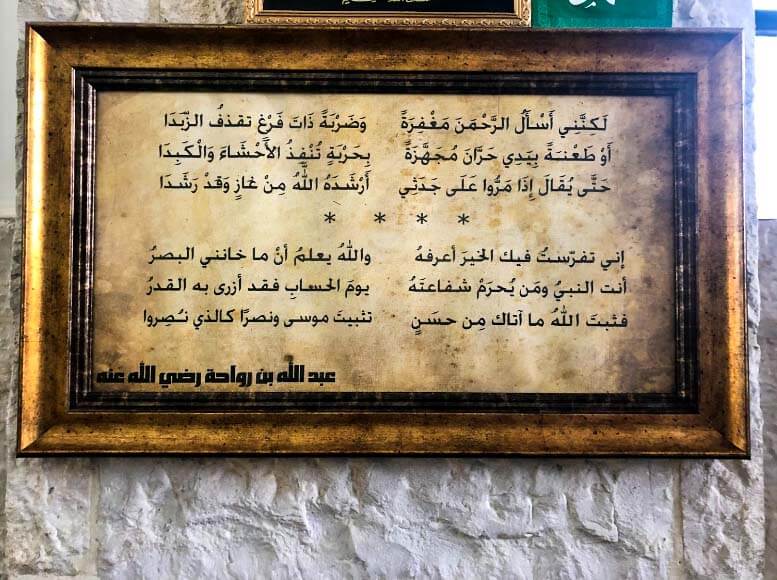 لَكِنَّنِي أَسْأَلُ الرَّحْمَنَ مَغْفِرَةً وَضَرْبَةً ذَاتَ فَرْغٍ تقذفُ الزَّبَدَا
أَوْ طَعْنَةً بِيَدِي حَرَّانَ مُجَهَّزَةً بِحَرْبَةٍ تُنْفِذُ الأَحْشَاءَ وَالْكَبِدَا
حَتَّى يُقَالَ إِذَا مَرُّوا عَلَى جَدَثِي أَرْشَدَهُ اللَّهُ مِنْ غَازٍ وَقَدْ رَشَدَا
* * * *
إني تفرّستُ فيك الخيرَ أعرفه واللهُ يعلمُ أنْ ما خانني البصرُ
أنت النبيُ ومَن يُحرَمْ شفاعتَهُ يومَ الحسابِ فقد أزرى به القدرُ
فثبتَ اللهُ ما آتاك مِن حسَنٍ تثبيتَ موسى ونصرًا كالذي نُصِروا
عبد الله بن رواحة رضي الله عنه